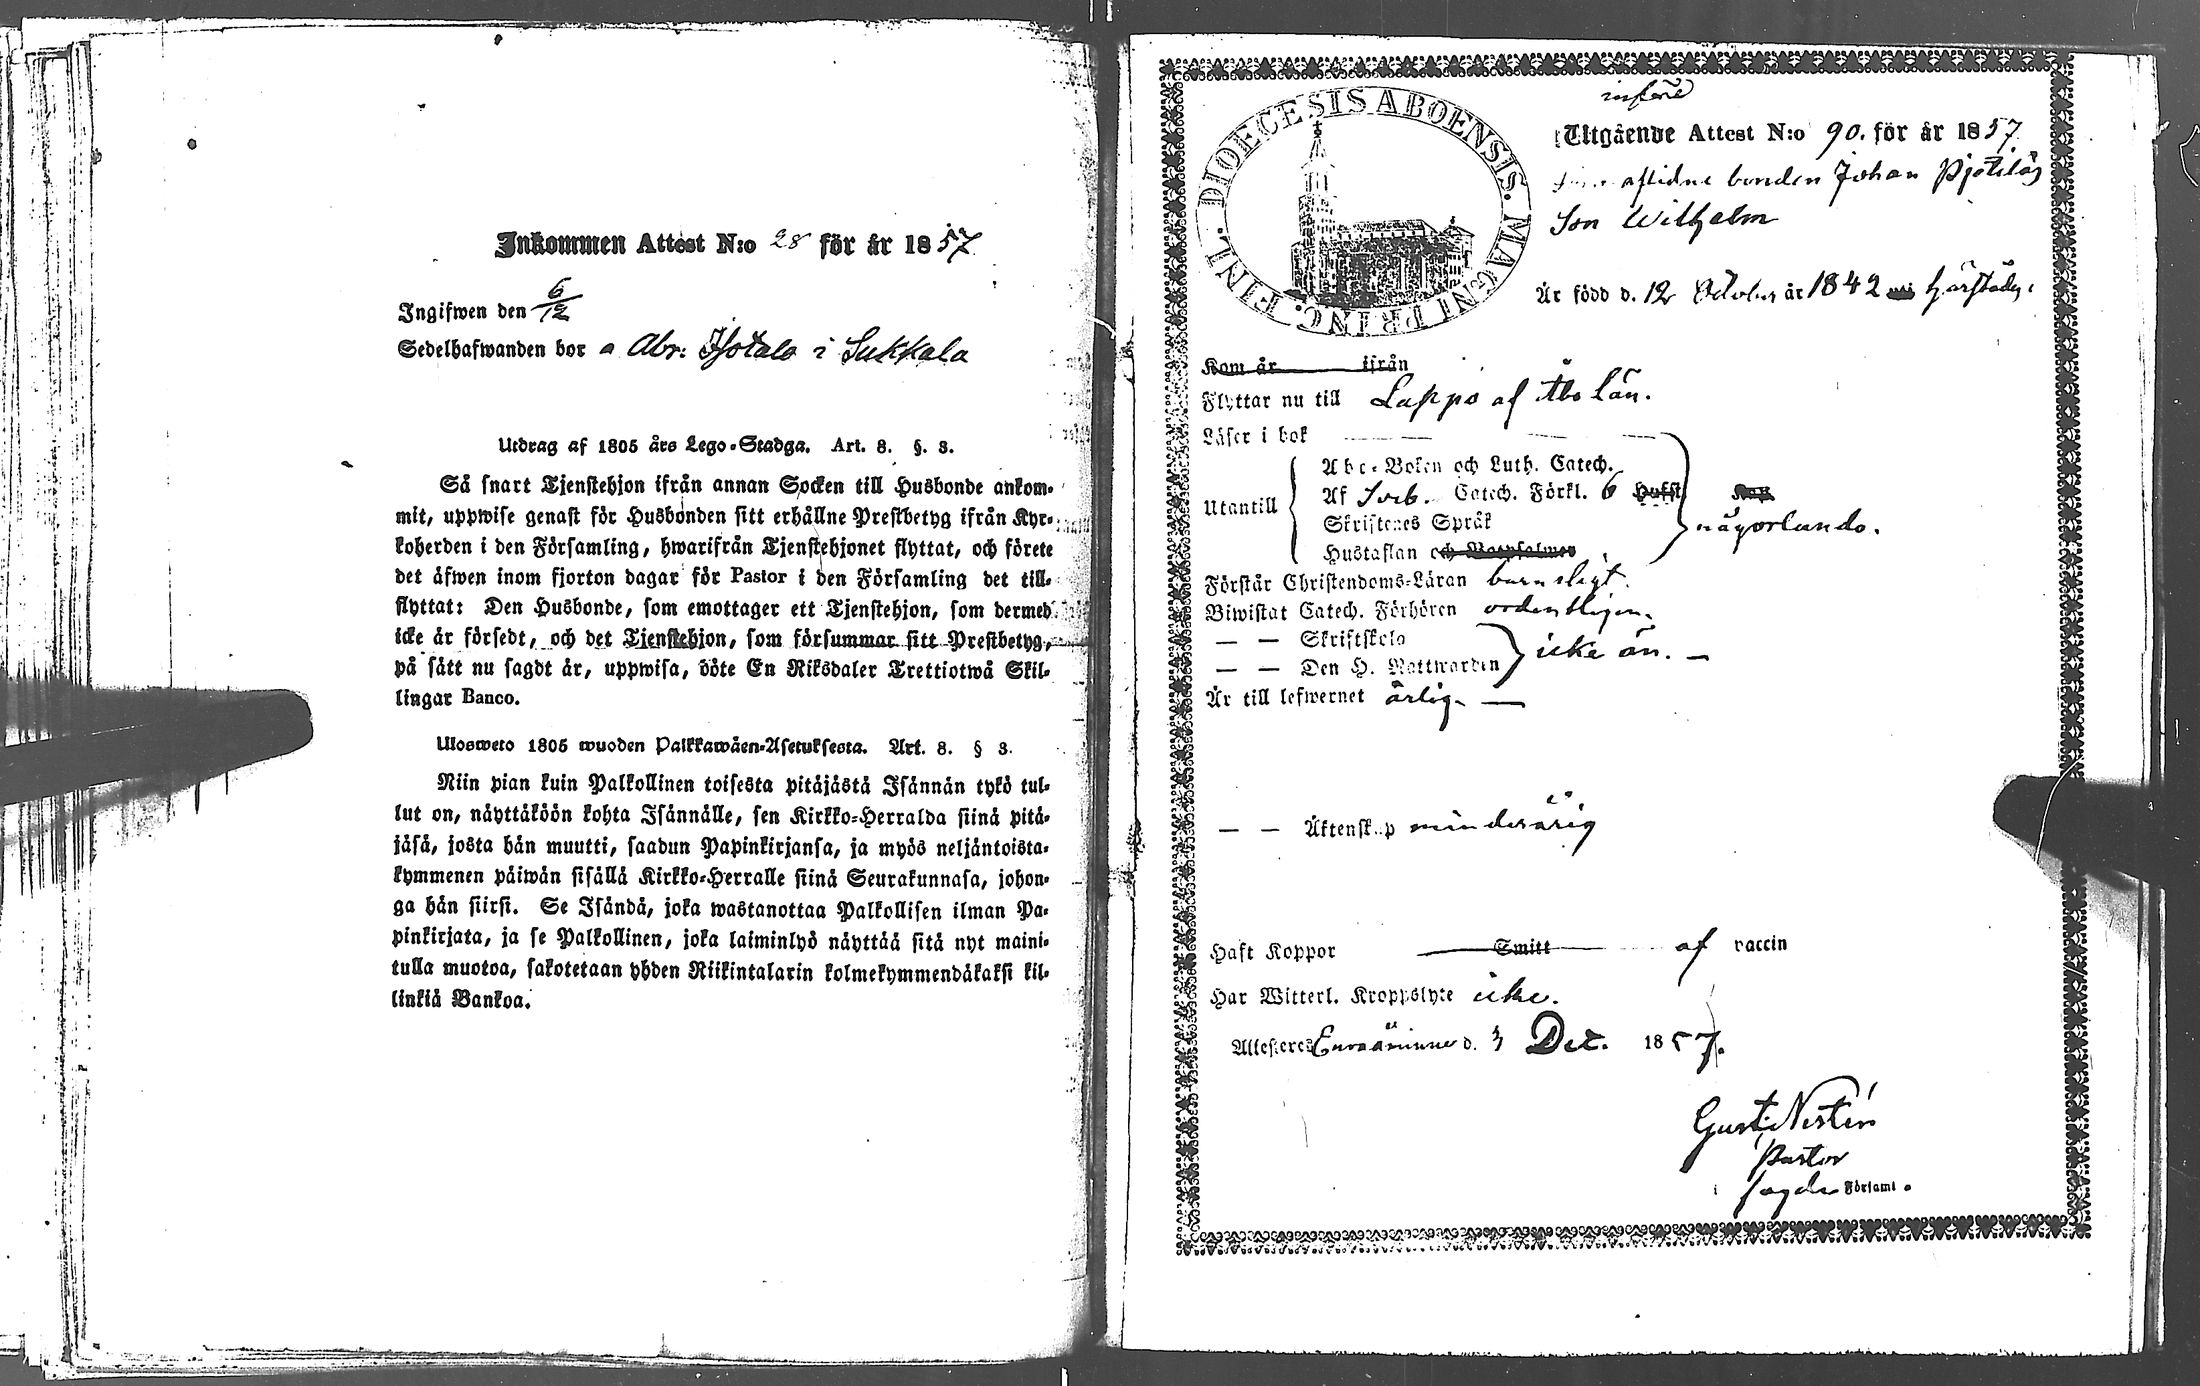 Inkommen Attest N:o 28 för år 1857
Ingifwen den 6/12
Sedelhafwanden bor a Abr: Isotalo i Sukkala
Utdrag af 1805 års Lego-Stadga. Art. 8. §. 3.
Så snart Tjenstehjon ifrån annan Socken till Husbonde ankom-
mit, uppwise genast för Husbonden sitt erhållne Prestbetyg ifrån Kyr-
koherden i den Församling, hwarifrån Tjenstehjonet flyttat, och förete
det äfwen inom fjorton dagar för Pastor i den Församling det till-
flyttat: Den Husbonde, som emottager ett Tjenstehjon, som dermed
icke är försedt, och det Tjenstehjon, som försummar sitt Prestbetyg,
på sätt nu sagdt är, uppwisa, böte En Riksdaler Trettiotwå Skil-
lingar Banco.
Ulosweto 1805 wuoden Palkkawäen-Asetuksesta. Art. 8. § 3.
Niin pian kuin Palkollinen toisesta pitäjästä Isännän tykö tul-
lut on, näyttäköön kohta Isännälle, sen Kirkko-Herralda siinä pitä-
jäsä, josta hän muutti, saadun Papinkirjansa, ja myös neljäntoista-
kymmenen päiwän sisällä Kirkko-Herralle siinä Seurakunnasa, johon-
ga hän siirsi. Se Isändä, joka wastanottaa Palkollisen ilman Pa-
pinkirjata, ja se Palkollinen, joka laiminlyö näyttää sitä nyt maini-
tulla muotoa, sakotetaan yhden Riikintalarin kolmekymmendäkaksi kil-
linkiä Bankoa.
DIOECESIS ABOENSIS. MAGNI PRINC. FINL.
införd
Utgående Attest N:o 90. för år 1857
aflidne bonden Johan Pjetiläs
Son Wilhelm
Är född d. 12 October år 1842 härstädes
Kom år ifrån
Flyttar nu till Lappo af Åbo Län.
Läser i bok
Utantill
Abc-Boken och Luth. Catech.
Af Sveb. Catech. Förkl. 6 Hufst.
Skriftenes Språk
Hustaflan och Botpsalmer
Kap.
någorlunda.
Förstår Christendoms-Läran barnsligt.
Biwistat Catech. Förhören ordentligen.
— — Skriftskola
— — Den H. Nattwarden
icke än. —
Är till lefwernet ärlig. —
— — Äktenskap minderårig
Haft Koppor Smitt af vaccin
Har Witterl. Kroppslyte icke.
Attesteres Euraåminne d. 3 Dec. 1857.
Gust. Nestén
Pastor
i sagde Församl.